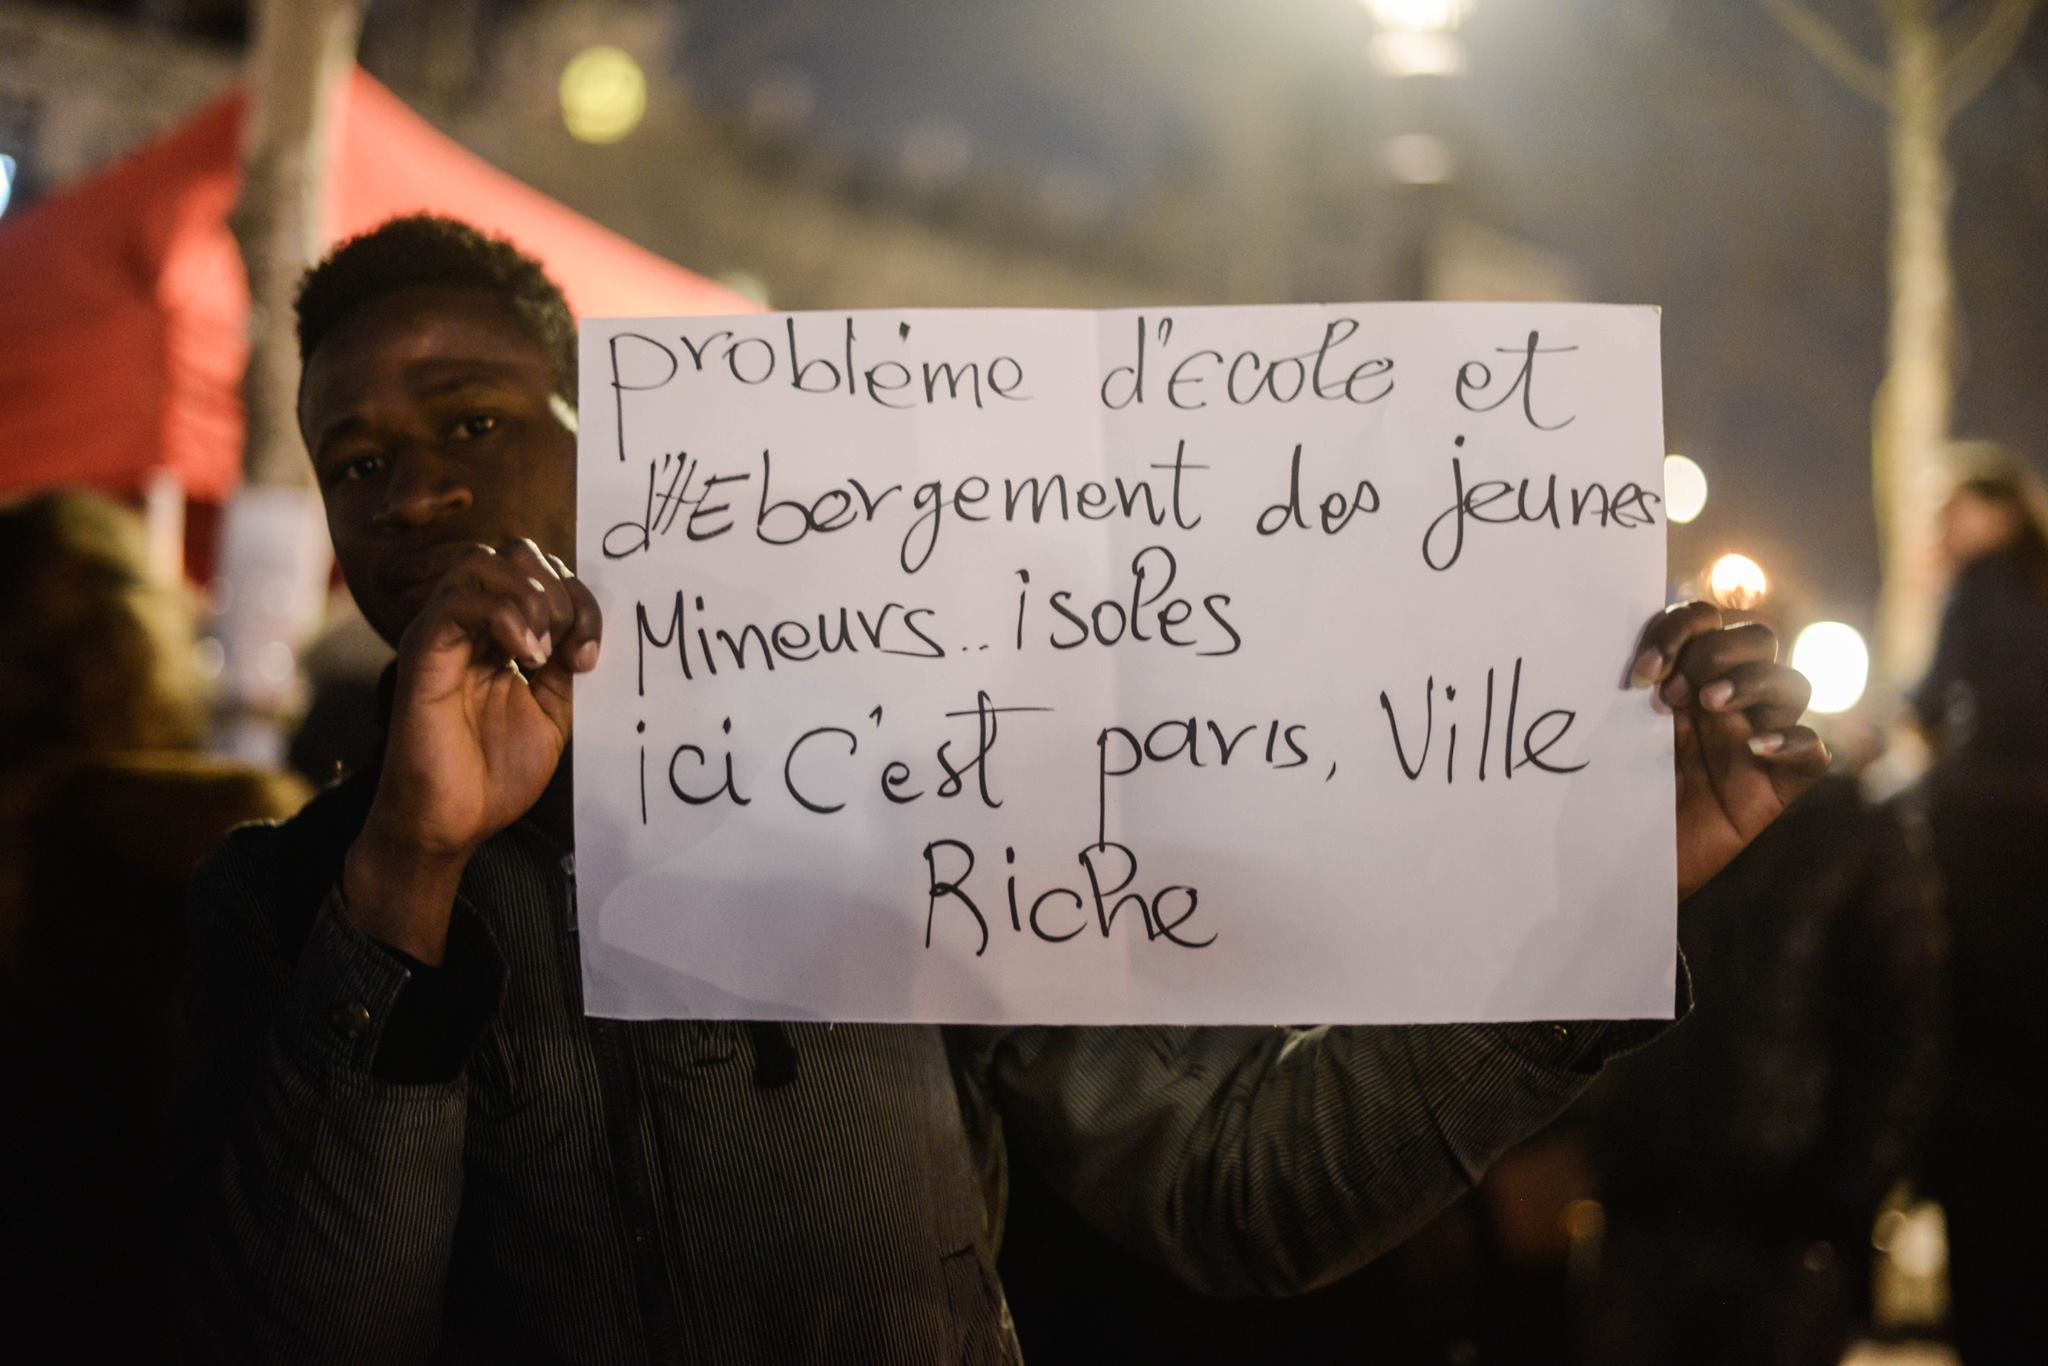 probléme d'Ecole et
d'HEbergement des jeunes
Mineurs.. isoles
ici C'est paris, Ville
Riche